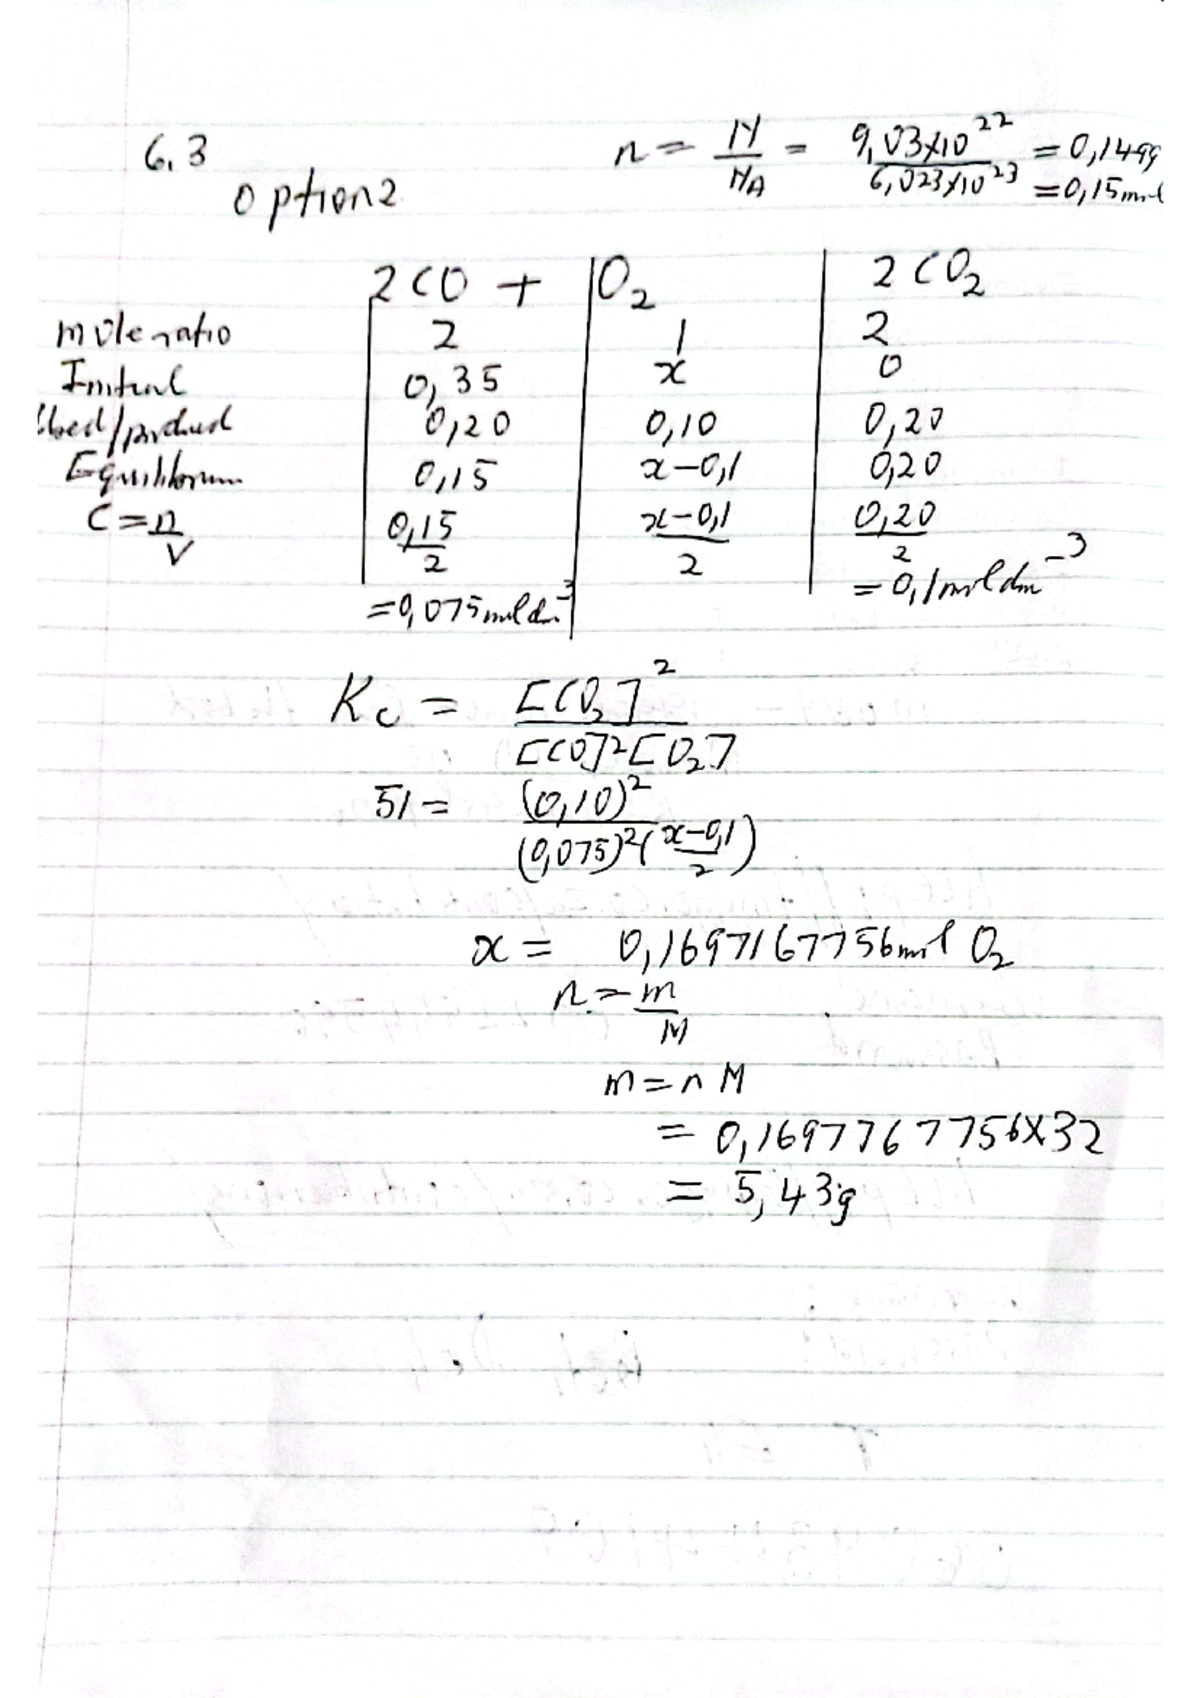 6.3
option2
n = N/NA = 9,03x10^22/6,023x10^23 = 0,1499
= 0,15mol
2CO + | O2 | 2CO2
mole ratio 2 1 2
Initial 0,35 x 0
Used/produced 0,20 0,10 0,20
Equilibrium 0,15 x-0,1 0,20
C=n/V 0,15/2 x-0,1/2 0,20/2
=0,075 mol dm^-3 = 0,1 mol dm^-3
Kc = [CO2]^2/[CO]^2[O2]
51 = (0,10)^2/(0,075)^2(x-0,1/2)
x = 0,1697167756mol O2
n = m/M
m = n M
= 0,1697767756x32
= 5,43g